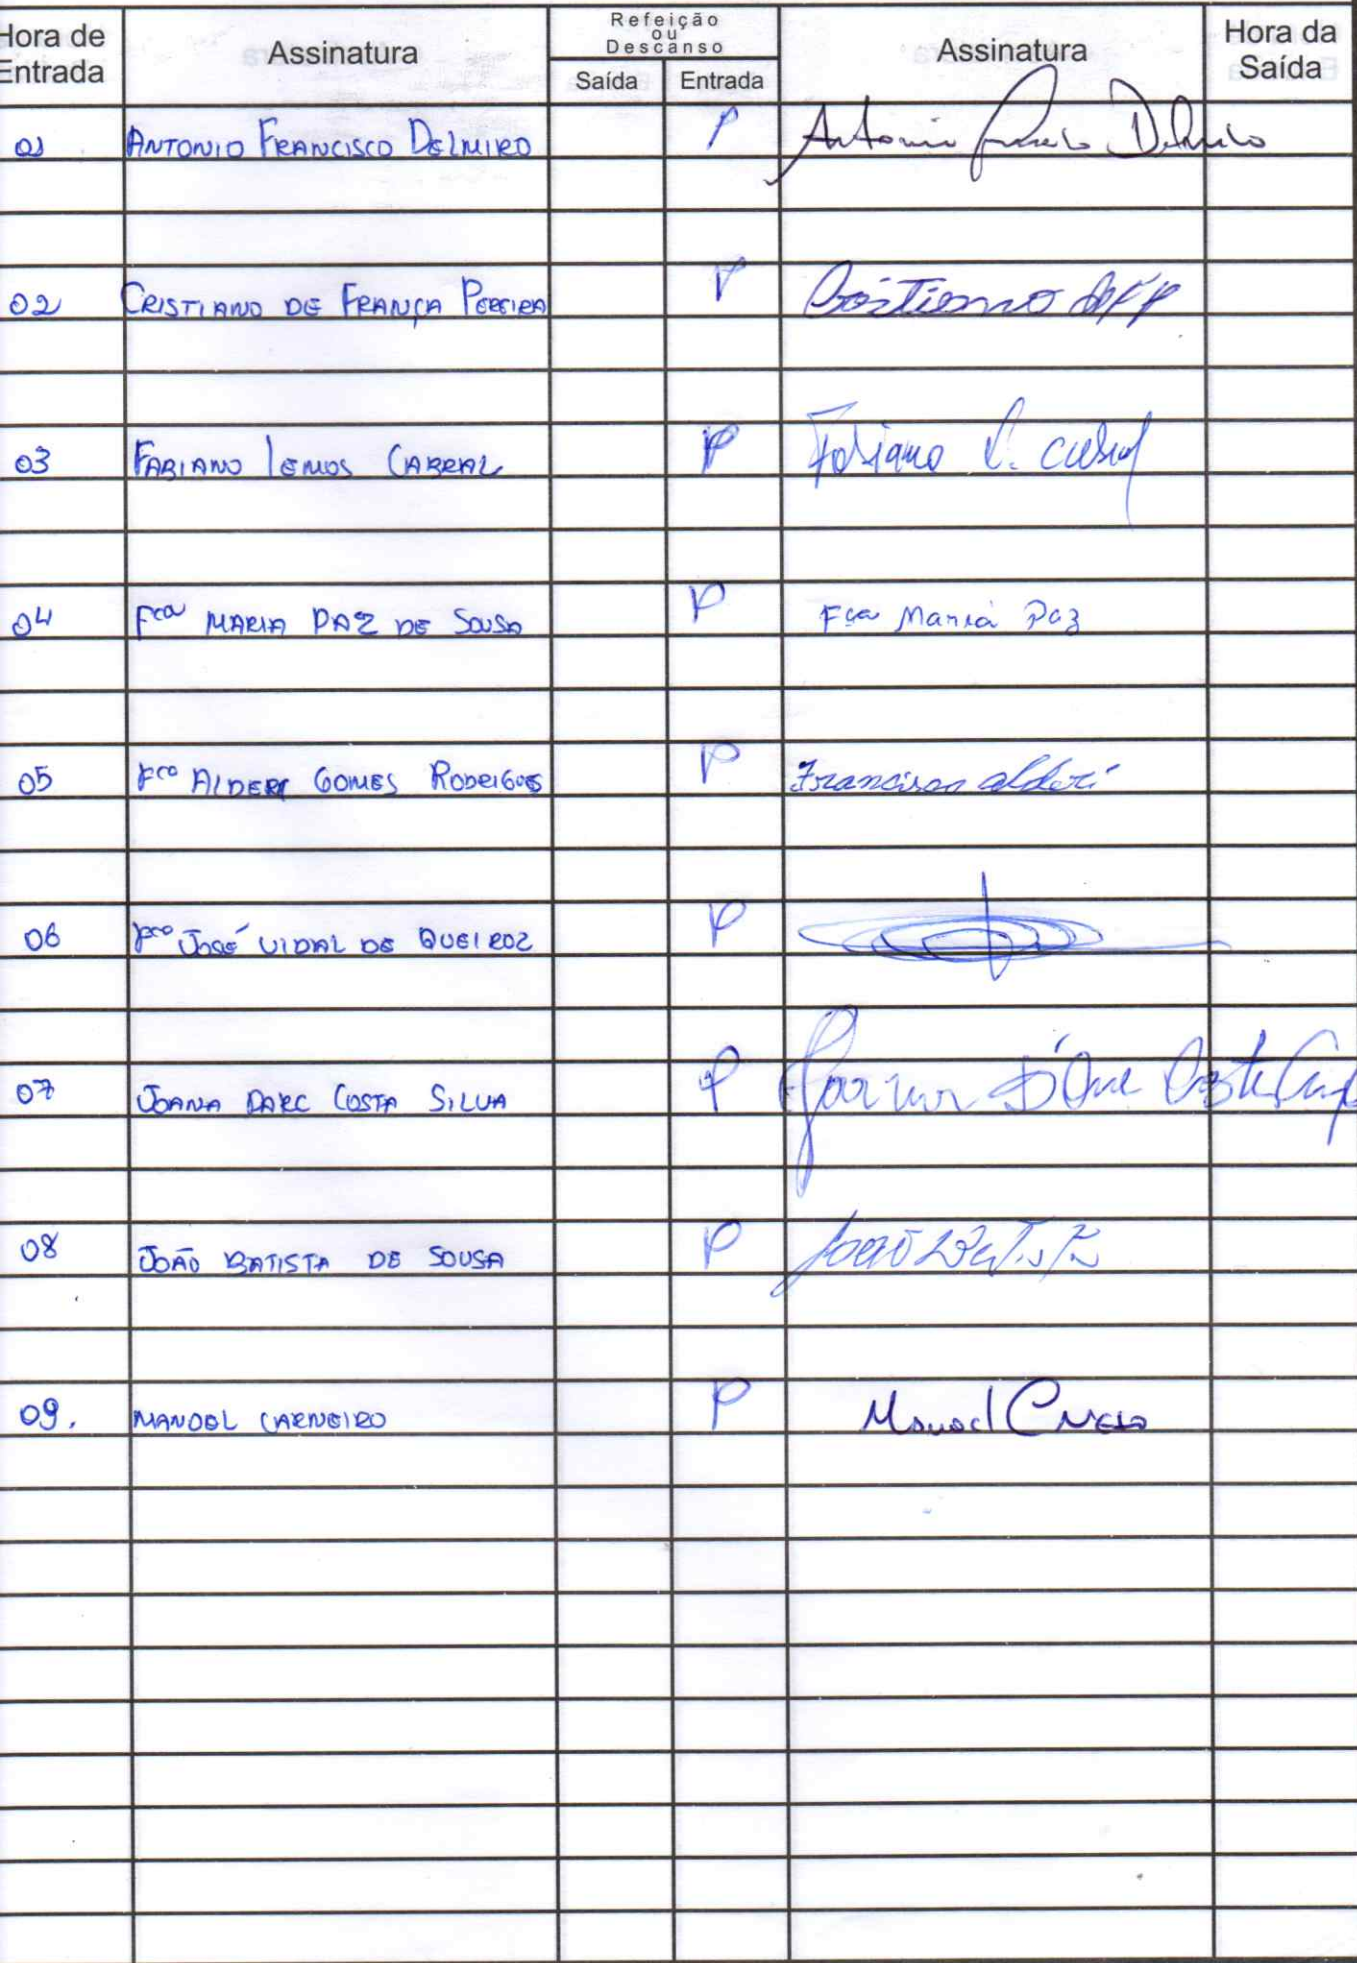 Hora de Entrada
Assinatura
Refeição ou Descanso
Saída Entrada
Assinatura
Hora da Saída
01 ANTONIO FRANCISCO DELMIRO P Antonio Delmiro
02 CRISTIANO DE FRANÇA PEREIRA P Cristiano
03 FABIANO LEMOS CABRAL P Fabiano L. Cabral
04 Fca MARIA PAZ DE SOUSA P Fca Maria Paz
05 Fco ALDERI GOMES RODRIGUES P Francisco alderi
06 Fco JOSÉ VIDAL DE QUEIROZ P
07 JOANA DARC COSTA SILVA P Costa
08 JOÃO BATISTA DE SOUSA P João Batista
09. MANOEL CARNEIRO P Manoel